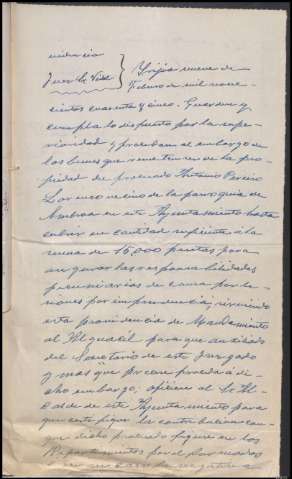 videncia
Juez Sr. Vidal } Irijoa nueve de
Febrero de mil nove-
cientos cuarenta y cinco. Guardese y
cumpla lo dispuesto por la supe-
rioridad y procedan al embargo de
los bienes que sean de la pro-
piedad de procesado Antonio Pareiro
vecino de la parroquia de
Ambroa en este Ayuntamiento hasta
cubrir en cantidad suficiente a la
suma de 15.000 pesetas para
asegurar las responsabilidades
pecuniarias de causa por le-
siones por imprudencia, sirviendo
esta providencia de Mandamiento
al Alguacil para que auxiliado
del Secretario de este Juzgado
y mas que por ceda a di-
cho embargo, oficiese al Sr. Al-
calde de este Ayuntamiento para
que certifique la contribucion con
que dicho procesado figura en los
Repartimientos por el
y en caso de negativa a